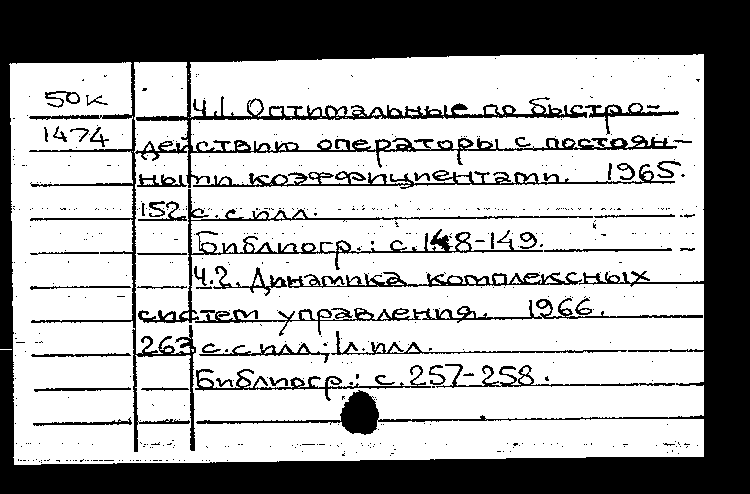 50к
1474
Ч.1. Оптимальные по быстро-
действию операторы с постоян-
ными коэффициентами. 1965.
152 с. с илл.
Библиогр.: с.148-149.
Ч.2. Динамика комплексных
систем управления. 1966.
263 с. с илл.; 1л. илл.
Библиогр.: с. 257-258.